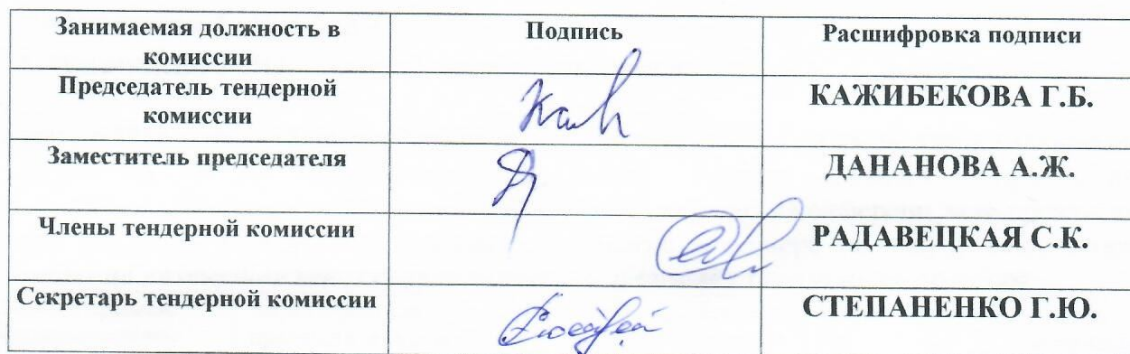 Занимаемая должность в комиссии Подпись Расшифровка подписи
Председатель тендерной комиссии КАЖИБЕКОВА Г.Б.
Заместитель председателя ДАНАНОВА А.Ж.
Члены тендерной комиссии РАДАВЕЦКАЯ С.К.
Секретарь тендерной комиссии СТЕПАНЕНКО Г.Ю.